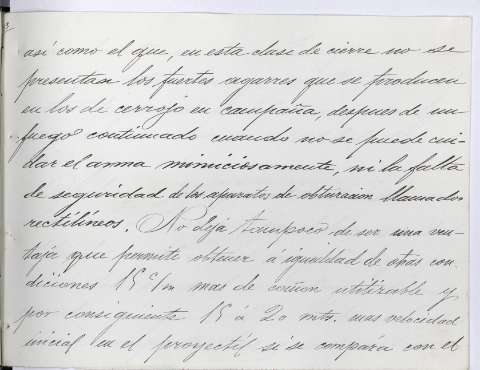 así como el que, en esta clase de cierre no se
presentan los fuertes agarres que se producen
en los de cerrojo en campaña, despues de un
fuego continuado cuando no se puede cui-
dar el arma miniciosamente, ni la falta
de seguridad de los aparatos de obturacion llamados
rectilíneos. No deja tampoco de ser una ven-
taja que permite obtener á igualdad de otras con
diciones 15 c/m mas de cañon utilizable y
por consiguiente 15 á 20 mts. mas velocidad
inicial en el proyectil si se compara con el